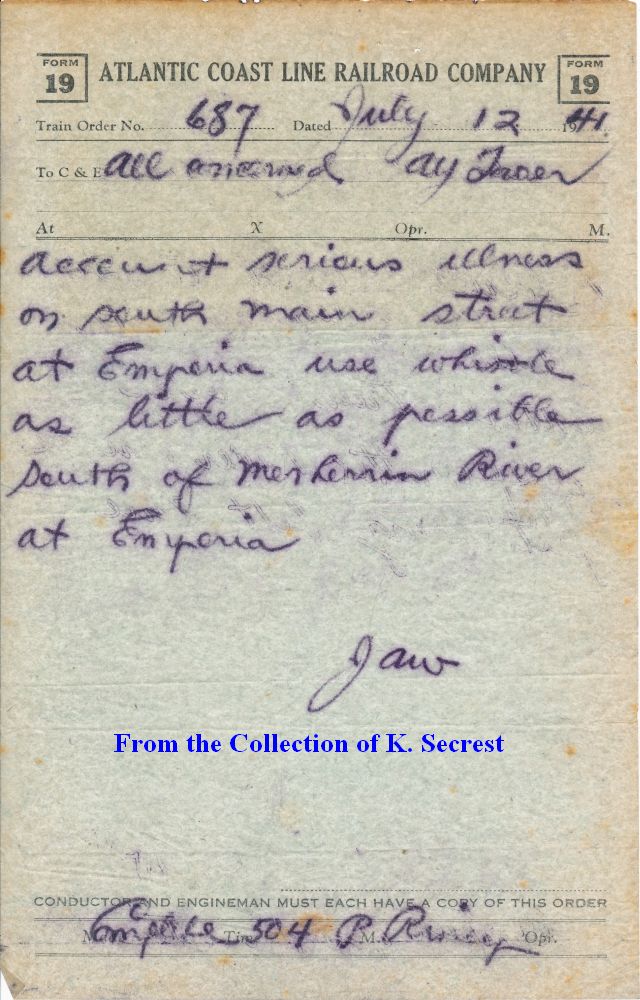 FORM 19 ATLANTIC COAST LINE RAILROAD COMPANY FORM 19
Train Order No. 687 Dated July 12 1941.
To C & E All concerned At
At X Opr. M.
account serious illness
on south main street
at Emporia use whistle
as little as possible
south of Meherrin River
at Emporia
Jaw
From the Collection of K. Secrest
CONDUCTOR AND ENGINEMAN MUST EACH HAVE A COPY OF THIS ORDER
M Complete Time 504 P M. Opr.